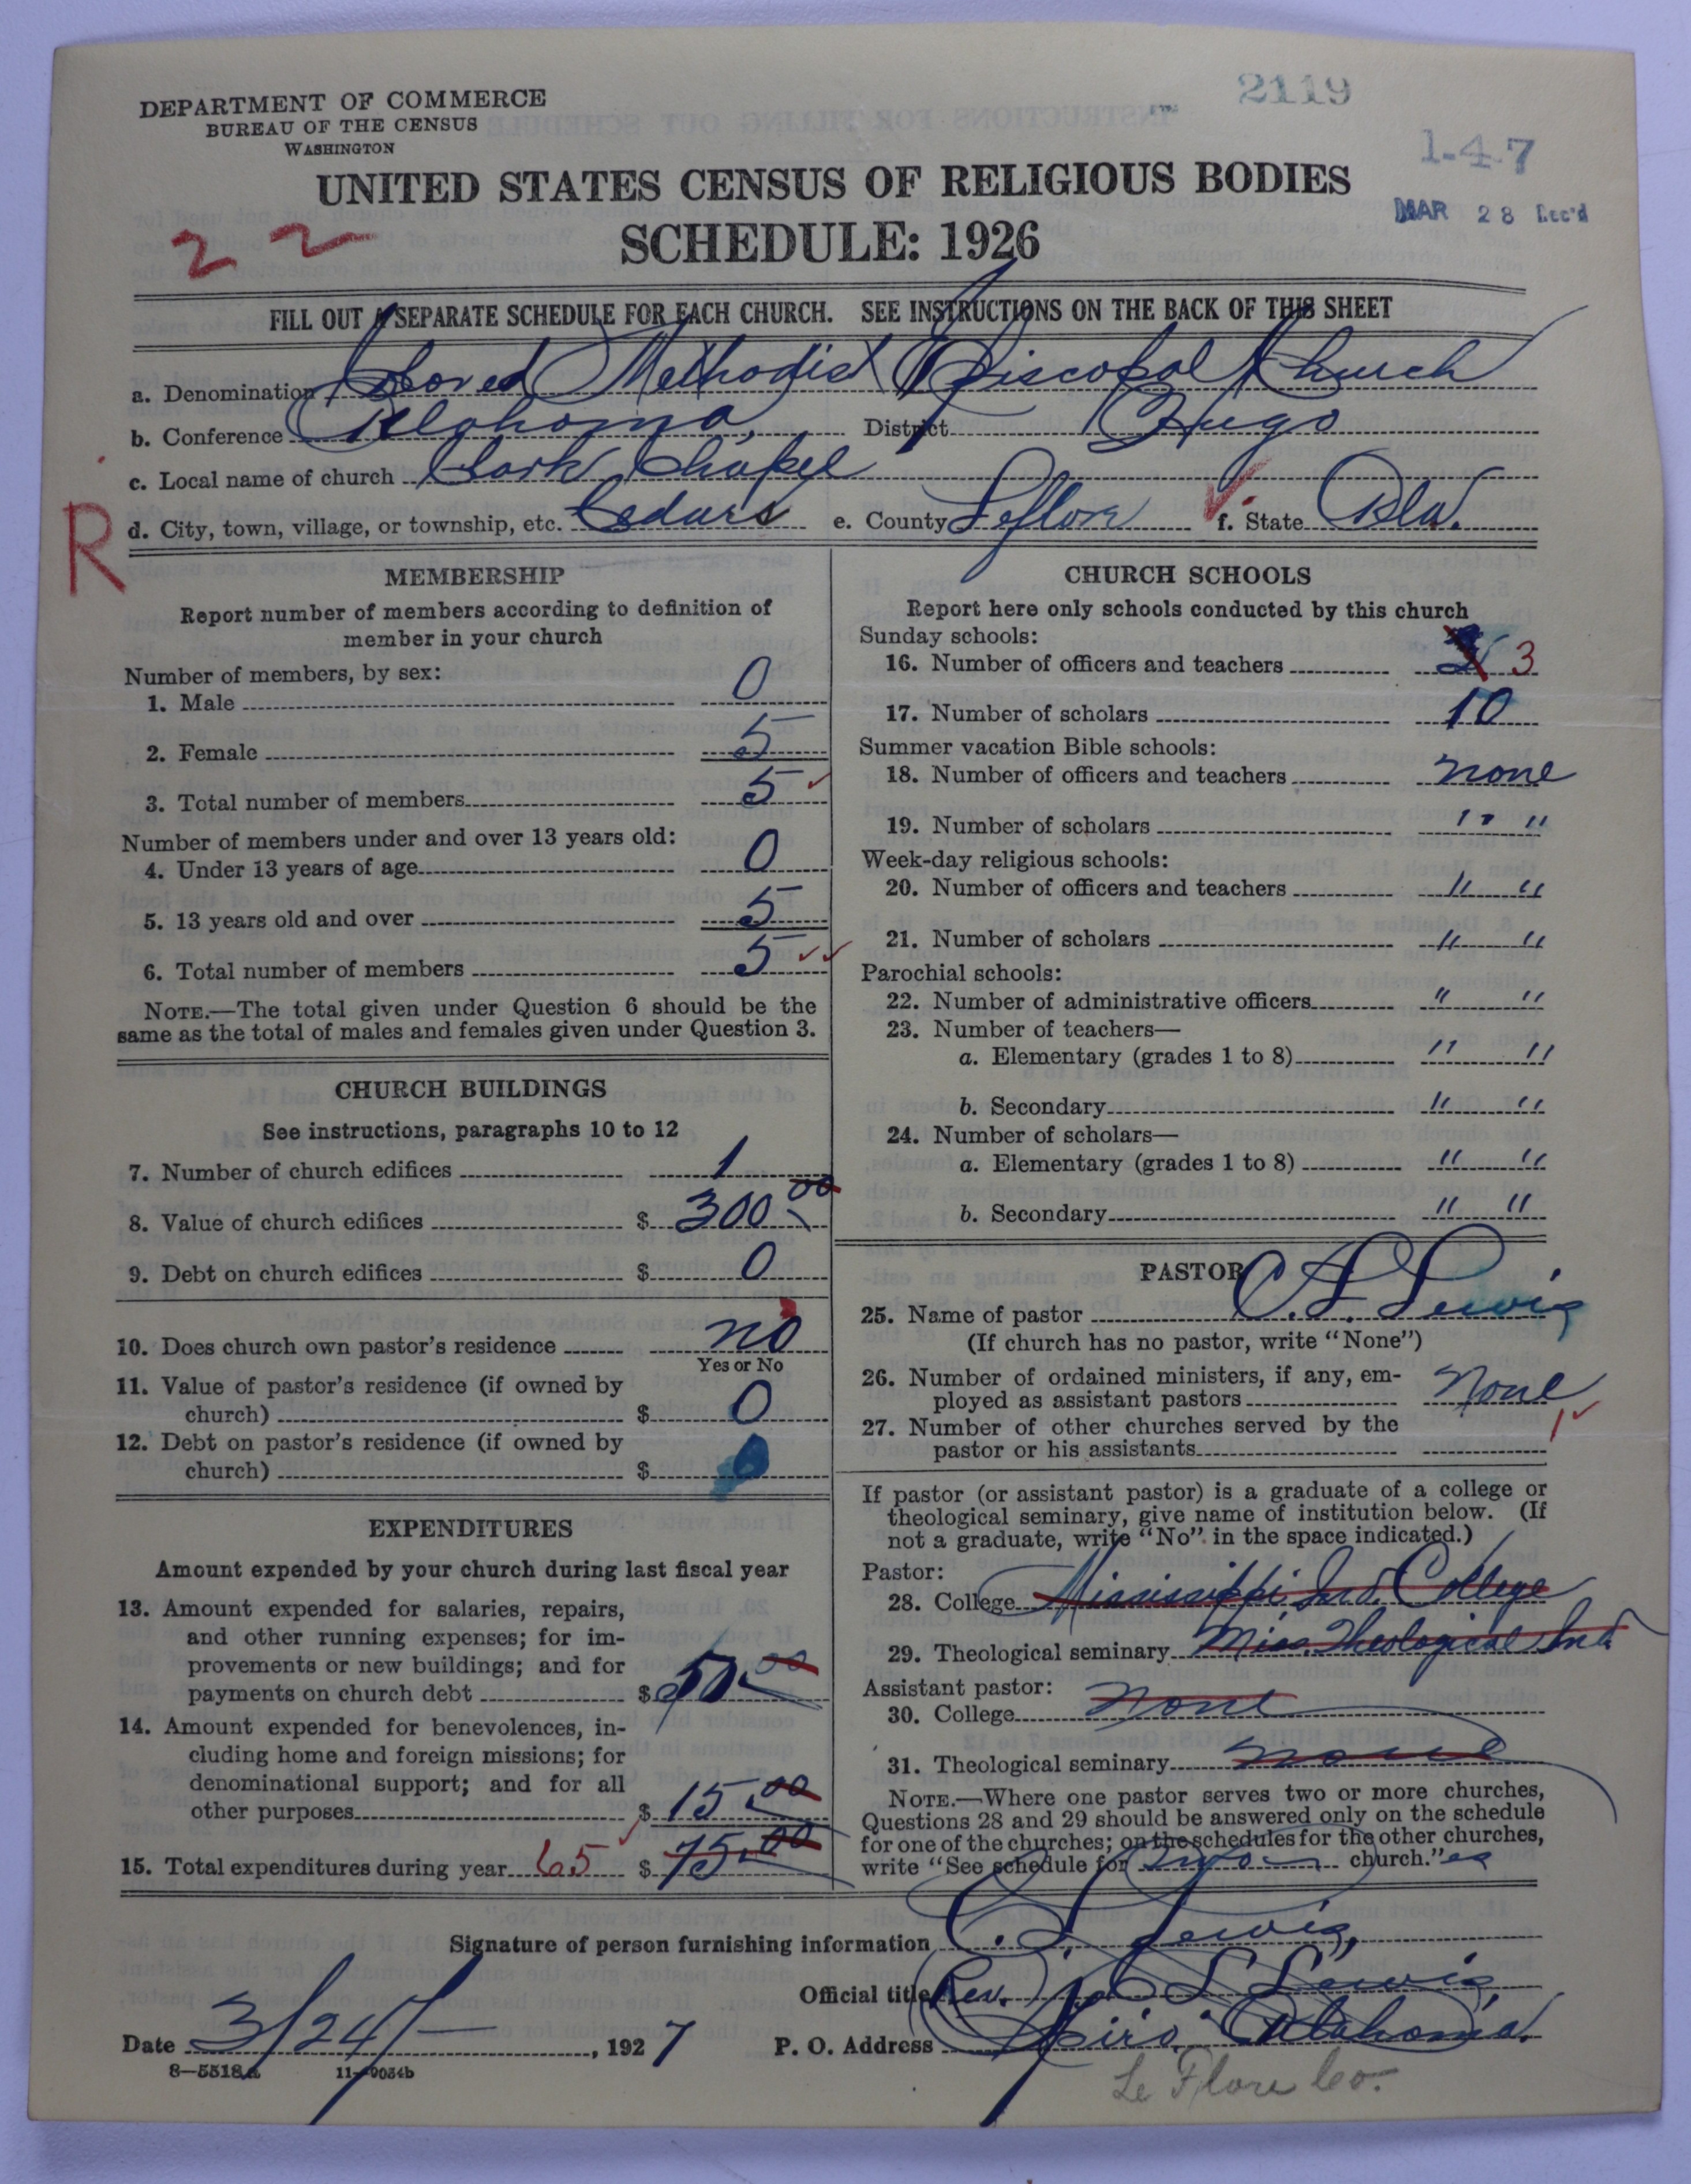 2119
DEPARTMENT OF COMMERCE
BUREAU OF THE CENSUS
WASHINGTON
1-4-7
UNITED STATES CENSUS OF RELIGIOUS BODIES
MAR 28 Rec'd
2 2
SCHEDULE: 1926
FILL OUT A SEPARATE SCHEDULE FOR EACH CHURCH. SEE INSTRUCTIONS ON THE BACK OF THIS SHEET
a. Denomination Colored Methodist Episcopal Church
b. Conference Oklahoma, District Hugo
c. Local name of church Clark Chapel
R
d. City, town, village, or township, etc. Cedars e. County Leflore f. State Okla.
MEMBERSHIP
Report number of members according to definition of
member in your church
Number of members, by sex:
1. Male 0
2. Female 5
3. Total number of members 5
Number of members under and over 13 years old:
4. Under 13 years of age 0
5. 13 years old and over 5
6. Total number of members 5
NOTE.—The total given under Question 6 should be the
same as the total of males and females given under Question 3.
CHURCH BUILDINGS
See instructions, paragraphs 10 to 12
7. Number of church edifices 1
8. Value of church edifices $ 300.00
9. Debt on church edifices $ 0
10. Does church own pastor's residence no
Yes or No
11. Value of pastor's residence (if owned by
church) $ 0
12. Debt on pastor's residence (if owned by
church) $ 0
EXPENDITURES
Amount expended by your church during last fiscal year
13. Amount expended for salaries, repairs,
and other running expenses; for im-
provements or new buildings; and for
payments on church debt $ 50.00
14. Amount expended for benevolences, in-
cluding home and foreign missions; for
denominational support; and for all
other purposes $ 15.00
15. Total expenditures during year 65 $ 75.00
CHURCH SCHOOLS
Report here only schools conducted by this church
Sunday schools:
16. Number of officers and teachers 3
17. Number of scholars 10
Summer vacation Bible schools:
18. Number of officers and teachers none
19. Number of scholars " "
Week-day religious schools:
20. Number of officers and teachers " "
21. Number of scholars " "
Parochial schools:
22. Number of administrative officers " "
23. Number of teachers—
a. Elementary (grades 1 to 8) " "
b. Secondary " "
24. Number of scholars—
a. Elementary (grades 1 to 8) " "
b. Secondary " "
PASTOR
25. Name of pastor C. S. Lewis
(If church has no pastor, write "None")
26. Number of ordained ministers, if any, em-
ployed as assistant pastors None
27. Number of other churches served by the
pastor or his assistants 1
If pastor (or assistant pastor) is a graduate of a college or
theological seminary, give name of institution below. (If
not a graduate, write "No" in the space indicated.)
Pastor:
28. College Mississippi Ind. College
29. Theological seminary Miss. Theological Ind
Assistant pastor:
30. College none
31. Theological seminary none
NOTE.—Where one pastor serves two or more churches,
Questions 28 and 29 should be answered only on the schedule
for one of the churches; on the schedules for the other churches,
write "See schedule for Two church." es
Signature of person furnishing information C. S. Lewis,
Official title Rev. C S Lewis,
Date 3/24/—, 1927 P. O. Address Spiro, Oklahoma.
8—5518a 11—9034b
Le Flore Co.